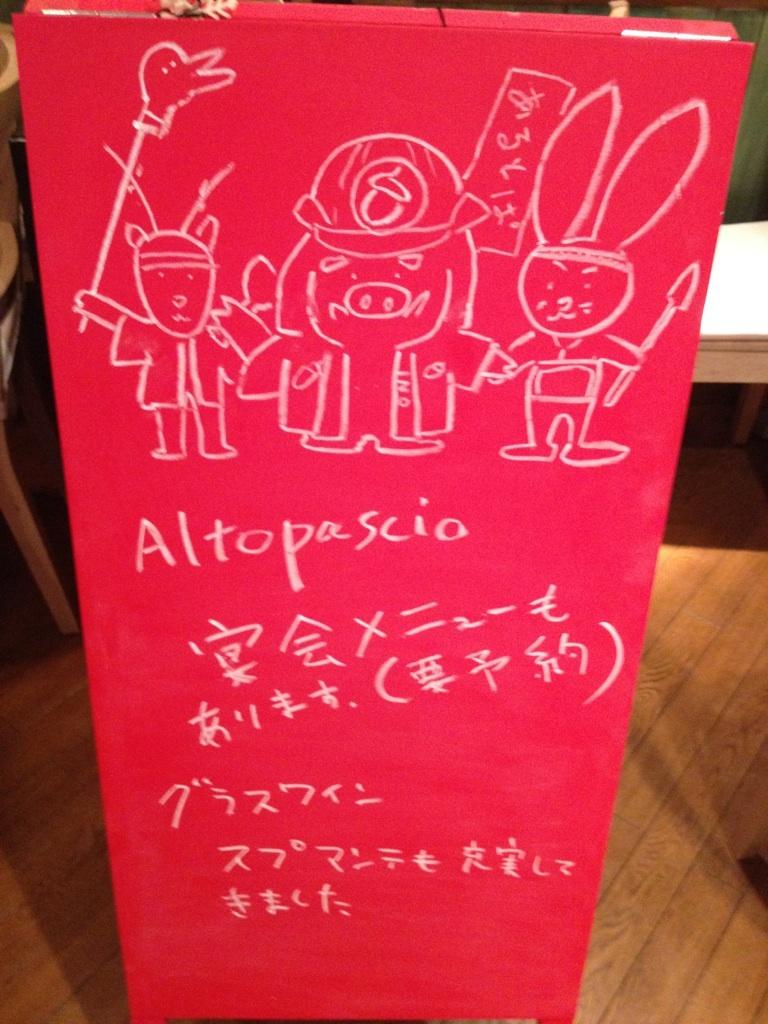 INO
Altopascio
宴会メニューも
あります.(要予約)
グラスワイン
スプマンテも充実して
きました